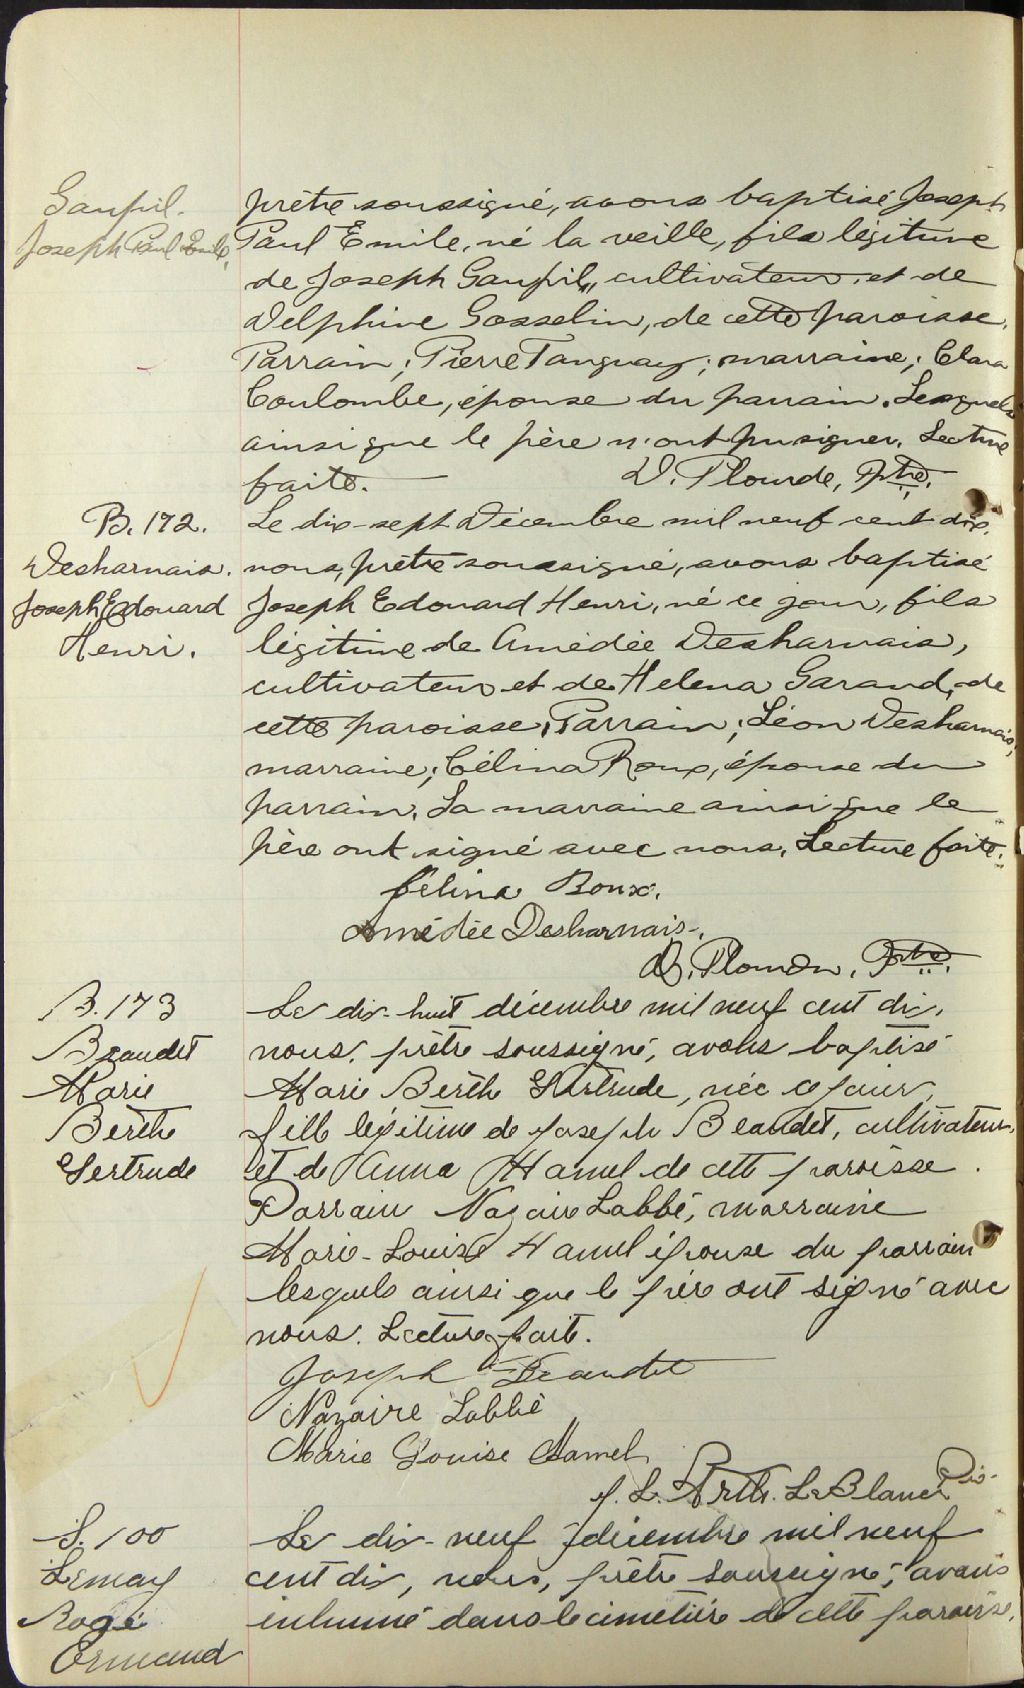 Goupil.
Joseph Paul Emile.
prêtre soussigné, avons baptisé Joseph
Paul Emile, né la veille, fils légitime
de Joseph Goupil, cultivateur, et de
Delphine Gosselin, de cette paroisse.
Parrain; Pierre Tanguay; marraine; Clara
Coulombe, épouse du parrain. Lesquels
ainsi que le père n'ont pu signer. Lecture
faite.
D. Plourde, Ptre.
B. 172.
Desharnais.
Joseph Edouard
Henri.
Le dix-sept Décembre mil neuf cent dix,
nous, prêtre soussigné, avons baptisé
Joseph Edouard Henri, né ce jour, fils
légitime de Amédée Desharnais,
cultivateur et de Helena Garand, de
cette paroisse. Parrain; Léon Desharnais,
marraine; Célina Roux, épouse du
parrain. La marraine ainsi que le
père ont signé avec nous. Lecture faite.
Célina Roux.
Amédée Desharnais.
D. Plourde, Ptre.
B. 173
Beaudet
Marie
Berthe
Gertrude
Le dix-huit décembre mil neuf cent dix,
nous, prêtre soussigné, avons baptisé
Marie Berthe Gertrude, née ce jour,
fille légitime de Joseph Beaudet, cultivateur,
et de Anna Hamel de cette paroisse.
Parrain Nazaire Labbé, marraine
Marie-Louise Hamel épouse du parrain
lesquels ainsi que le père ont signé avec
nous. Lecture faite.
Joseph Beaudet
Nazaire Labbé
Marie Louise Hamel
J. L. Arth. LeBlanc
S. 100
Lemay
Rogé
Ormand
Le dix-neuf décembre mil neuf
cent dix, nous, prêtre soussigné, avons
inhumé dans le cimetière de cette paroisse,